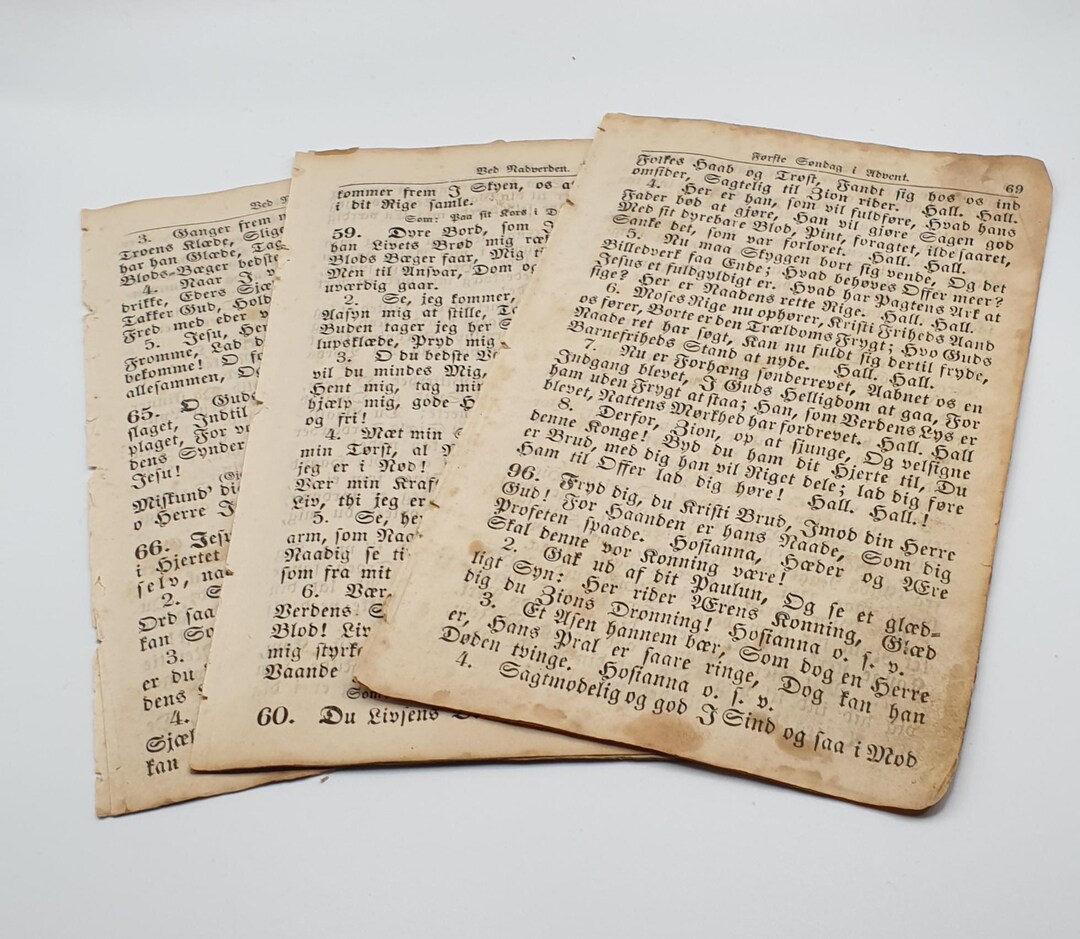 Ved
3. Ganger frem
Troens Klæde,
har han Glæde,
Blods-Bæger bedste
4. Naar J
drikke, Eders
Takker Gud, Hold
Fred med eder
5. Jesu,
Fromme, Lad
bekomme! O
allesammen,
65. O Gud
slaget, Indtil
plaget, For
dens Synder
Jesu!
Miskund'
o Herre
66. Jesu
i Hjertet
selv,
2.
Ord saa
kan
3.
er du
dens
4.
kan
Ved Nadverden.
kommer frem J Skyen, os
i dit Rige samle.
Som: Paa sit Kors i
59. Dyre Bord, som
han Livets Brød mig
Blods Bæger faar, Mig
Men til Ansvar, Dom
uværdig gaar.
2. Se, jeg kommer,
Aasyn mig at stille,
Buden tager jeg her
lupsklæde, Pryd mig
3. O du bedste
vil du mindes Mig,
Hent mig, tag
hjælp mig, gode
og fri!
4. Mæt min
min Tørst, al
jeg er i Nød!
Vær min
Liv, thi jeg er
5. Se,
arm, som
Naadig se
som fra mit
6. Vær
Verdens
Blod! Liv
mig
Vaande
60. Du Livsens
Første Søndag i Advent. 69
Folkes Haab og Trøst, Fandt sig hos os ind
omsider, Sagtelig til Zion rider. Hall. Hall.
4. Her er han, som vil fuldføre, Hvad hans
Fader bød at gjøre, Han vil gjøre Sagen god
Med sit dyrebare Blod, Pint, foragtet, ilde saaret,
Sanke det, som var forloret. Hall. Hall.
5. Nu maa Skyggen bort sig vende, Og det
Billedverk faa Ende; Hvad behøves Offer meer?
Jesus et fuldgyldigt er. Hvad har Pagtens Ark at
sige? Her er Naadens rette Rige. Hall. Hall.
6. Moses Rige nu ophører, Kristi Friheds Aand
os fører, Borte er den Trældoms Frygt; Hvo Guds
Naade ret har søgt, Kan nu fuldt sig dertil fryde,
Barnefriheds Stand at nyde. Hall. Hall.
7. Nu er Forhæng sønderrevet, Aabnet os en
Indgang blevet, J Guds Helligdom at gaa, For
ham uden Frygt at staa; Han, som Verdens Lys er
blevet, Nattens Mørkhed har fordrevet. Hall. Hall
8. Derfor, Zion, op at sjunge, Og velsigne
denne Konge! Byd du ham dit Hjerte til, Du
er Brud, med dig han vil Riget dele; lad dig føre
Ham til Offer lad dig høre! Hall. Hall.!
96. Fryd dig, du Kristi Brud, Imod din Herre
Gud! For Haanden er hans Naade, Som dig
Profeten spaade. Hosianna, Hæder og Ære
Skal denne vor Konning være!
2. Gak ud af dit Paulun, Og se et glæd-
ligt Syn: Her rider Ærens Konning, Glæd
dig du Zions Dronning! Hosianna o. s. v.
3. Et Asen hannem bær, Som dog en Herre
er, Hans Pral er saare ringe, Dog kan han
Døden tvinge. Hosianna o. s. v.
4. Sagtmodelig og god J Sind og saa i Mod